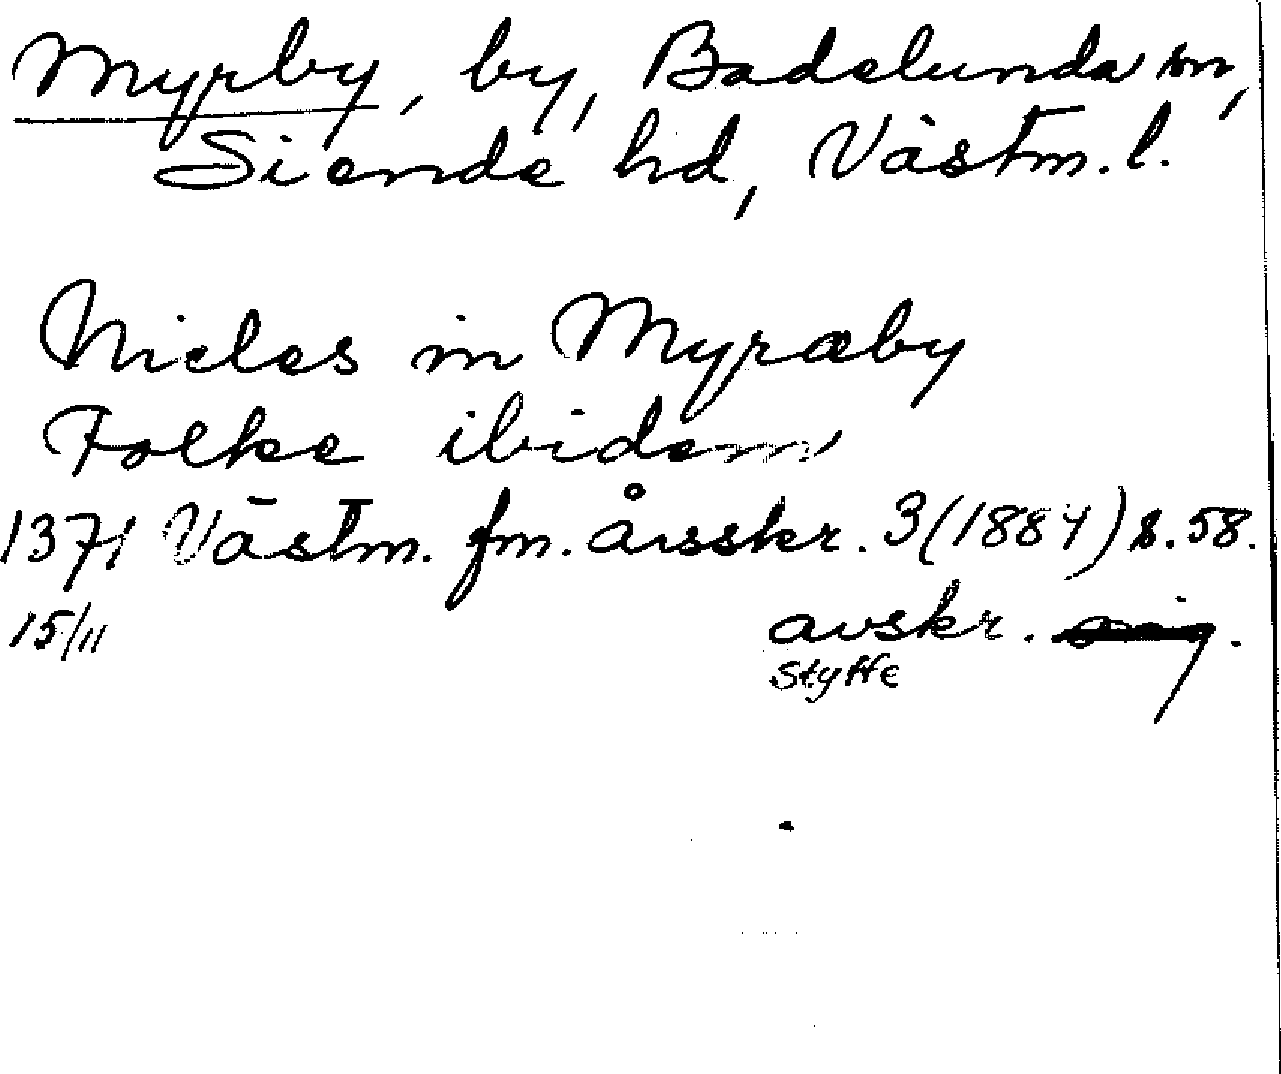 Myrby, by, Badelunda sn,
Siende hd, Västm. l.
Nicles in Myræby
Folke ibidem
1371 Västm. fm. årsskr. 3 (1884) s. 58.
15/11 avskr.
Styffe